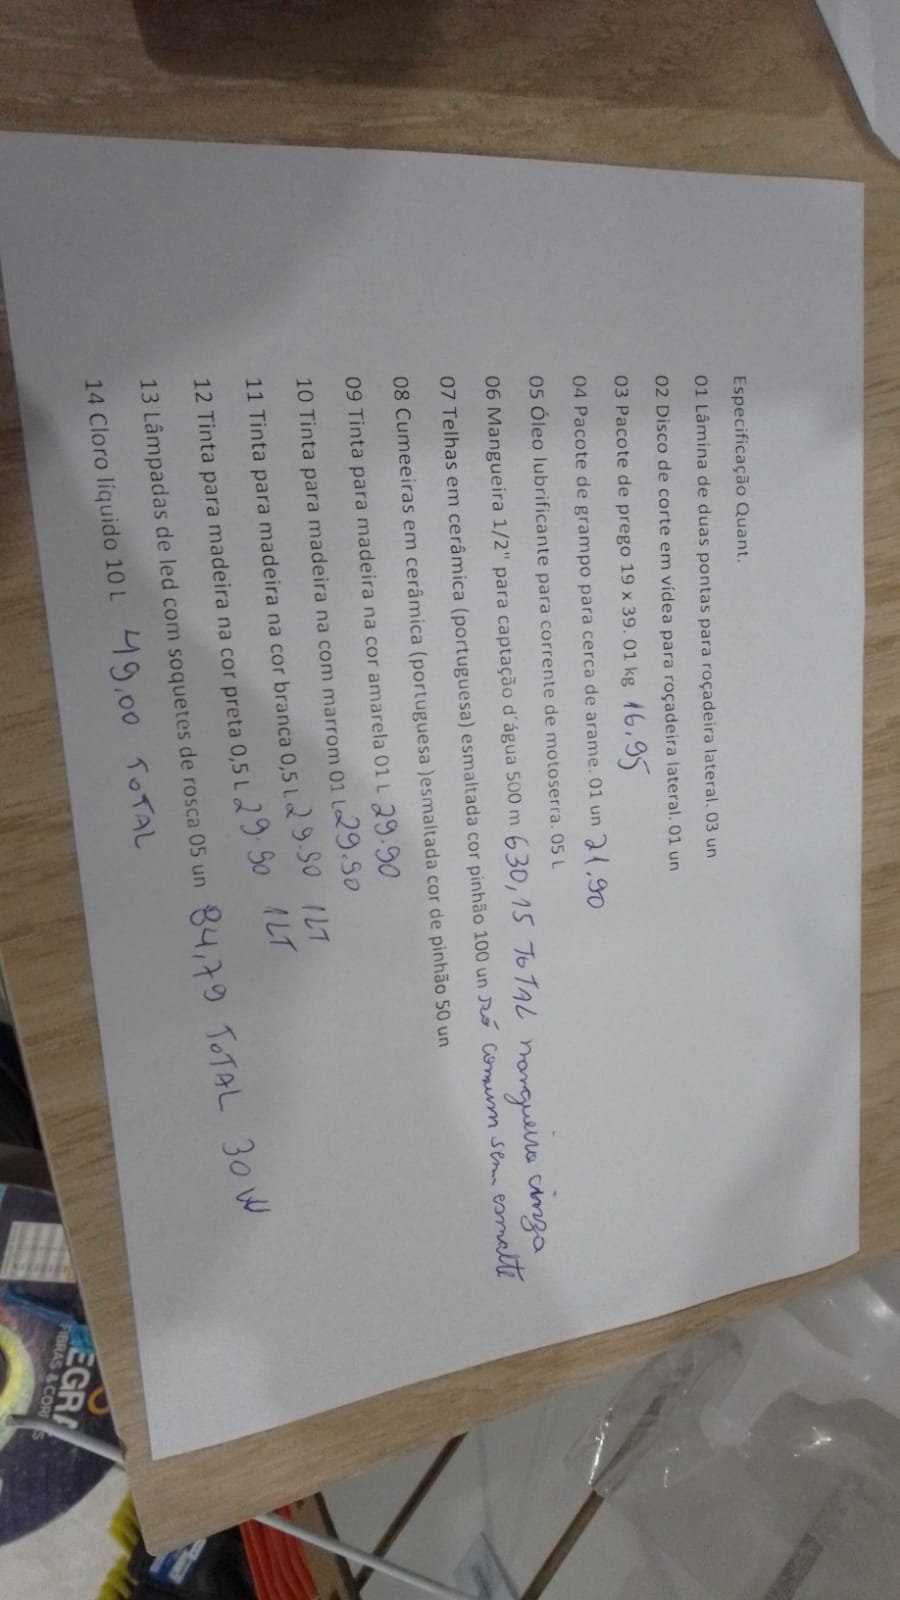 Especificação Quant.
01 Lâmina de duas pontas para roçadeira lateral. 03 un
02 Disco de corte em vídea para roçadeira lateral. 01 un
03 Pacote de prego 19 x 39. 01 kg 16,95
04 Pacote de grampo para cerca de arame. 01 un 21,90
05 Óleo lubrificante para corrente de motoserra. 05 L
06 Mangueira 1/2" para captação d´água 500 m 630,15 TOTAL mangueira cinza
07 Telhas em cerâmica (portuguesa) esmaltada cor pinhão 100 un só comum sem esmalte
08 Cumeeiras em cerâmica (portuguesa )esmaltada cor de pinhão 50 un
09 Tinta para madeira na cor amarela 01 L 29.90
10 Tinta para madeira na com marrom 01 L 29.90
11 Tinta para madeira na cor branca 0,5 L 29.90 1LT
12 Tinta para madeira na cor preta 0,5 L 29.90 1LT
13 Lâmpadas de led com soquetes de rosca 05 un 84,79 TOTAL 30W
14 Cloro líquido 10 L 49,00 TOTAL
EGRA
FIBRAS &